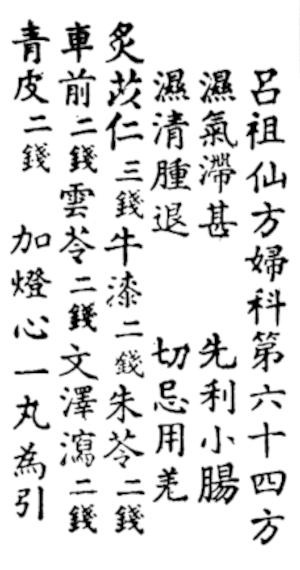 呂祖仙方婦科第六十四方
濕氣滯甚 先利小腸
濕清腫退 切忌用羌
炙苡仁二錢牛漆二錢朱苓二錢
車前二錢雲苓二錢文澤瀉二錢
青皮二錢 加燈心一丸為引